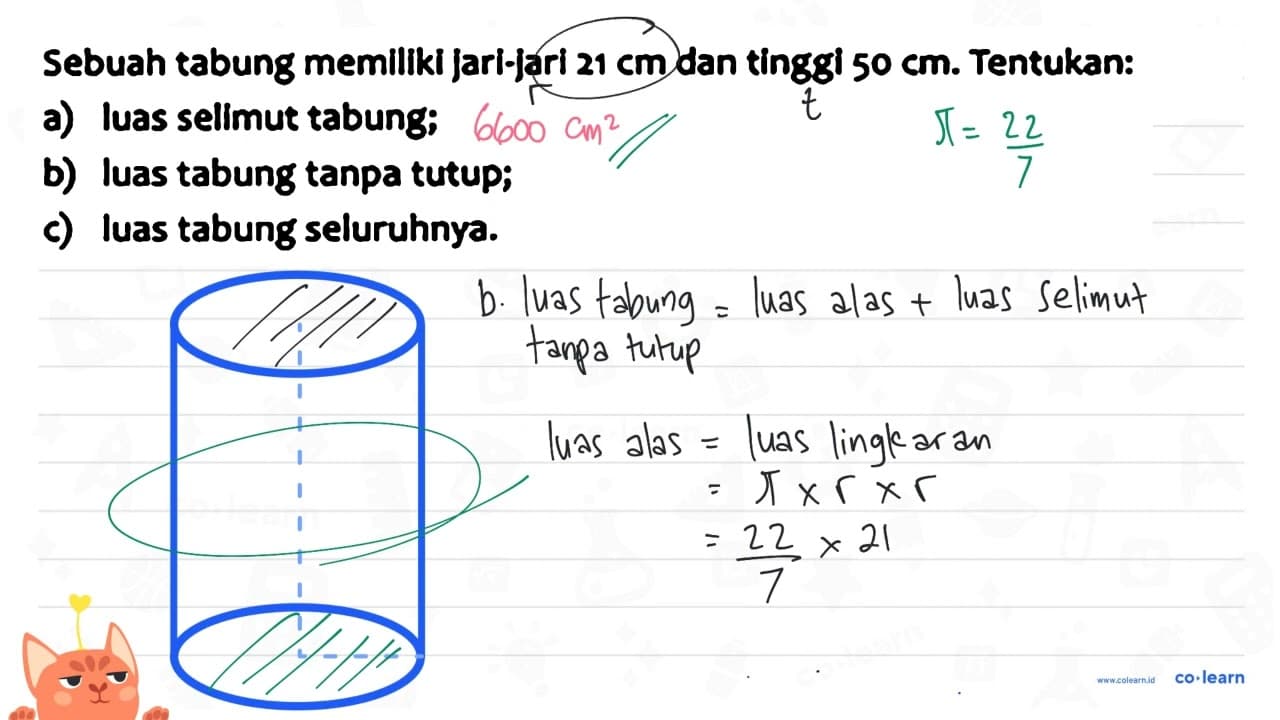 Sebuah tabung memiliki jari-jari 21 cm dan tinggi 50 cm. Tentukan:
r
t
a) luas selimut tabung; 6600 cm²
π = 22/7
b) luas tabung tanpa tutup;
c) luas tabung seluruhnya.
b. luas tabung = luas alas + luas selimut
tanpa tutup
luas alas = luas lingkaran
= π x r x r
= 22/7 x 21
www.colearn.id co•learn